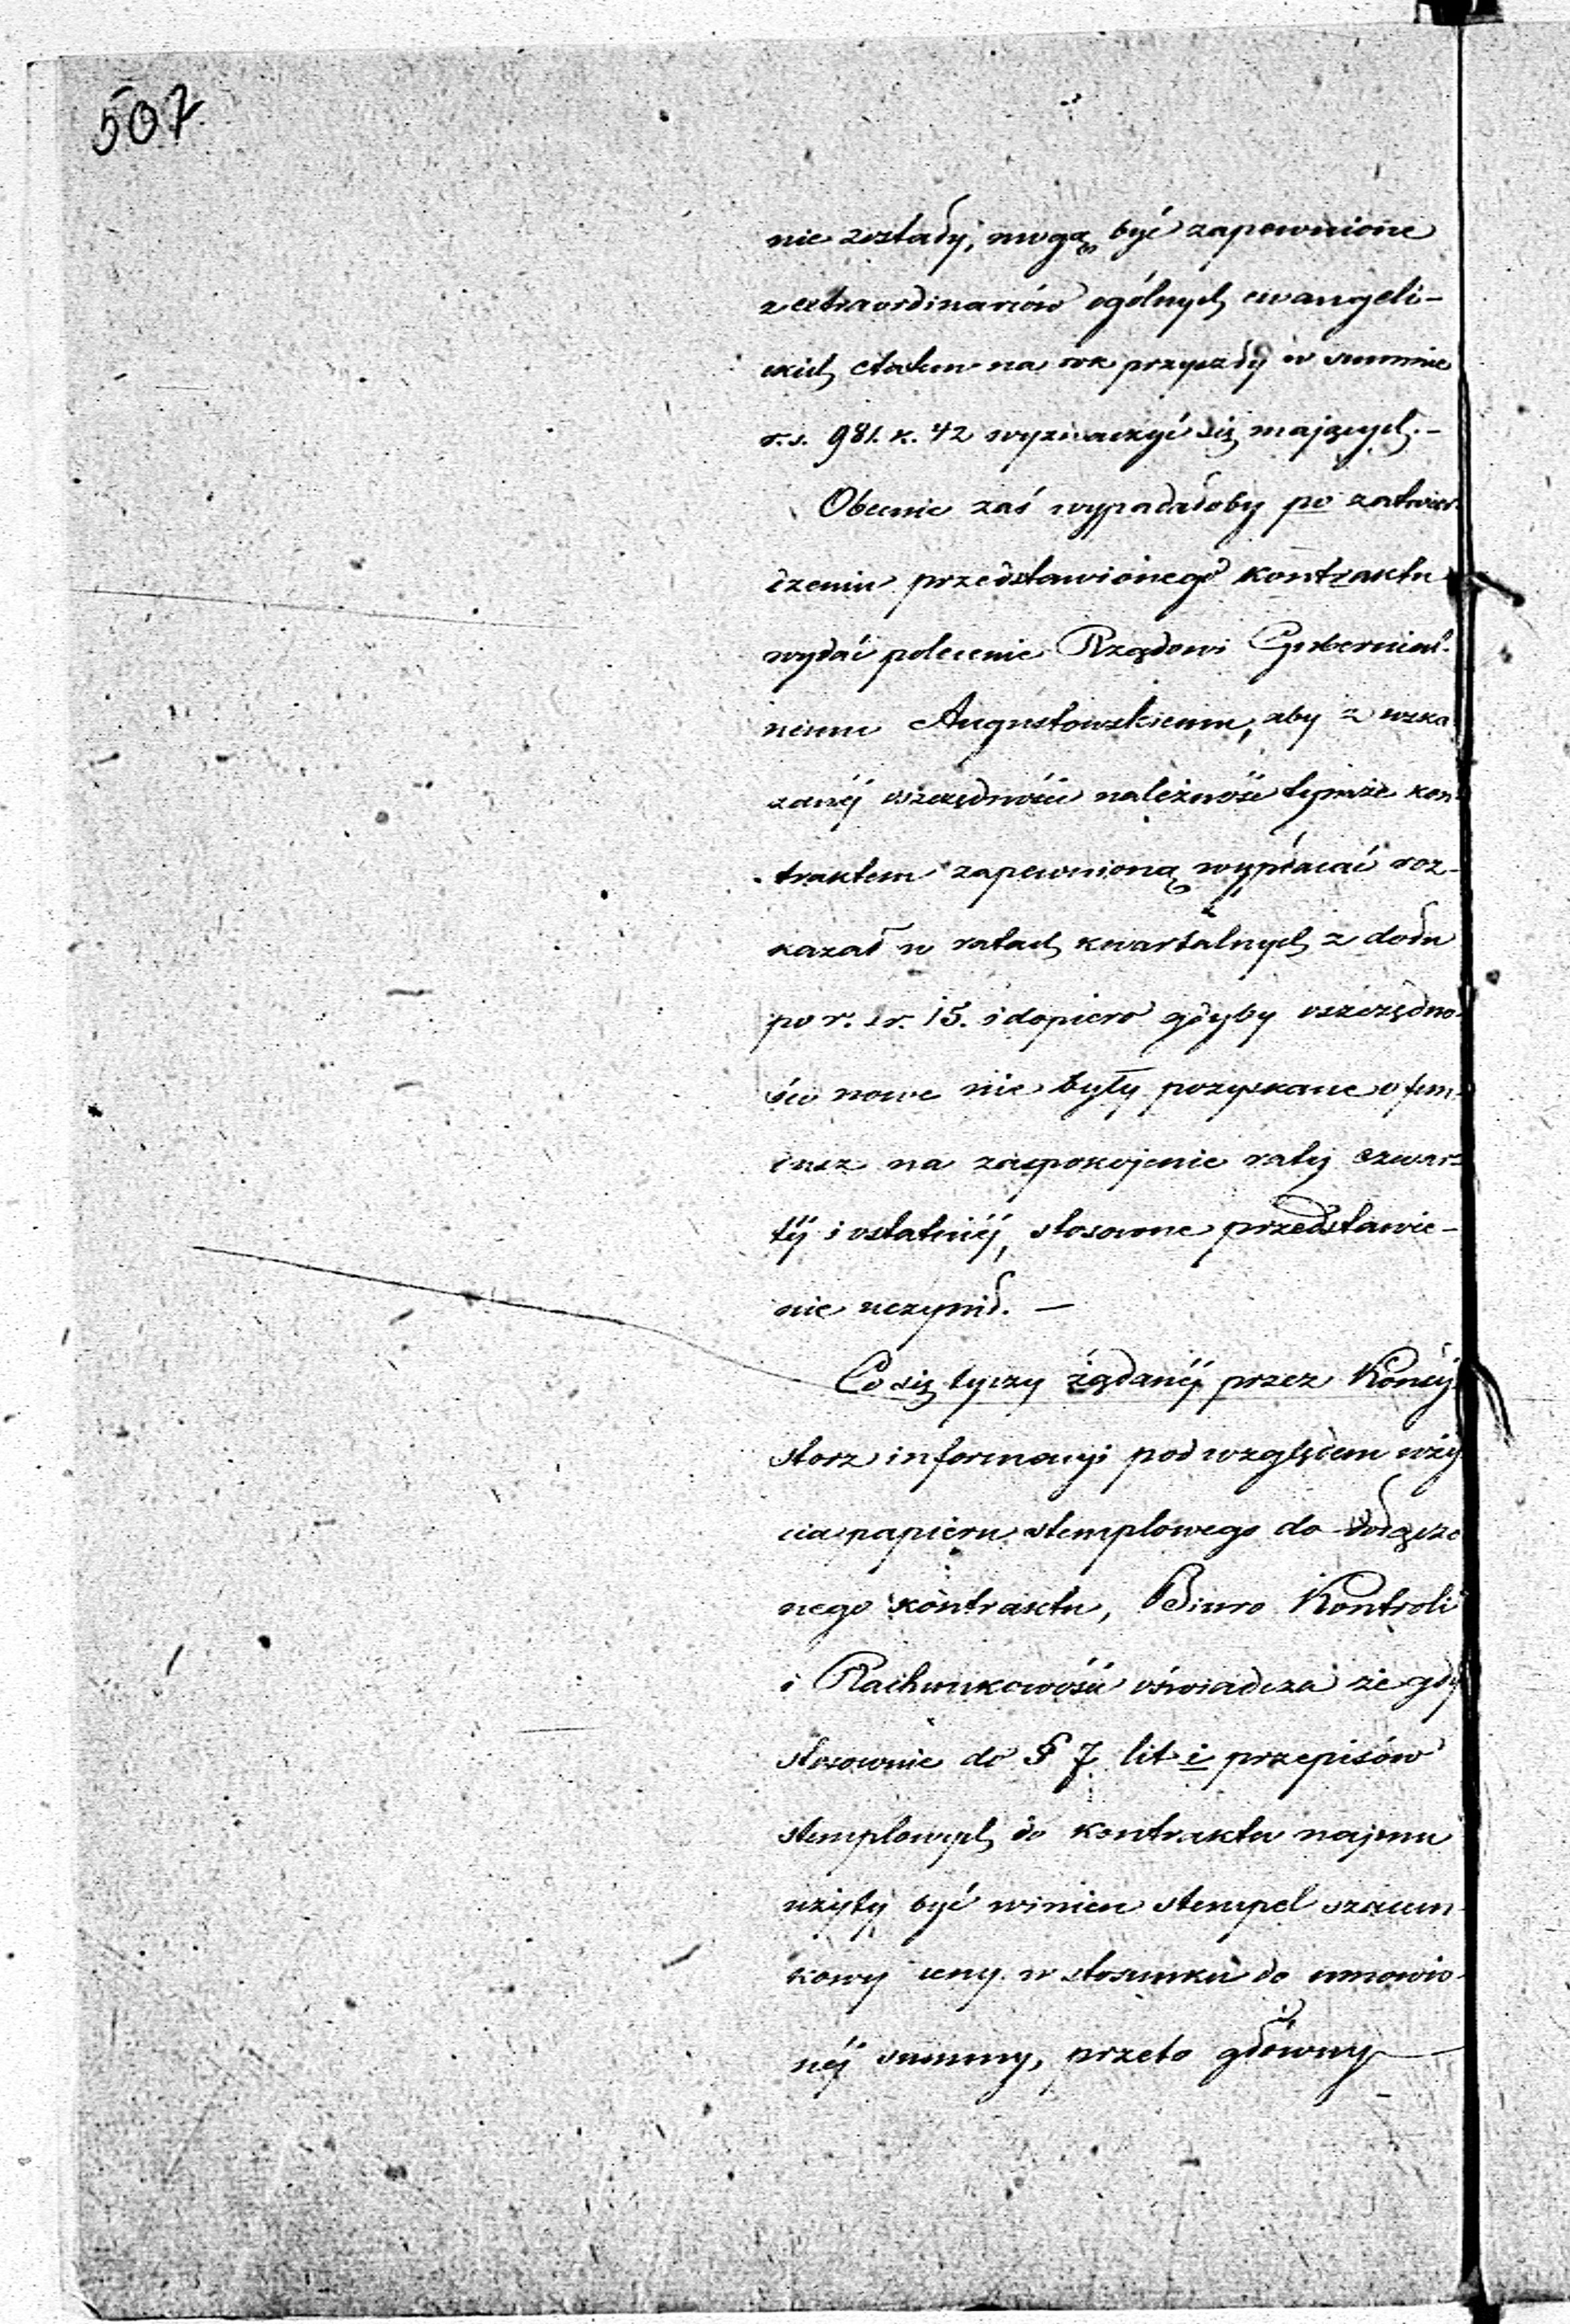 507
nie zostały, mogą być zapewnione
z extraordinariów ogólnych ewangeli-
ckich etatem na rok przyszły w summie
r.s. 981. k. 42 wyznaczyć się mających.-
Obecnie zaś wypadałoby po zatwier-
dzeniu przedstawionego kontraktu
wydać polecenie Rządowi Gubernial-
nemu Augustowskiemu, aby z wska
zanéj oszczędności należność tymże kon-
traktem zapewnioną wypłacać roz-
kazał w ratach kwartalnych z dołu
po r. sr. 15. i dopiero gdyby oszczędno-
ści nowe nie były pozyskane o fun-
dusz na zaspokojenie raty czwar-
téj i ostatniéj, stosowne przedstawie-
nie uczynił. —
Co się tyczy żądanéj przez Konsy-
storz informacyi pod względem uży
cia papieru stemplowego do dołączo
nego kontraktu, Biuro Kontroli
i Rachunkowości oświadcza że gdy
stosownie do § 7 lit i przepisów
stemplowych do kontraktu najmu
użyty być winien stempel szacun-
kowy ceny w stosunku do umowio-
néj summy, przeto główny